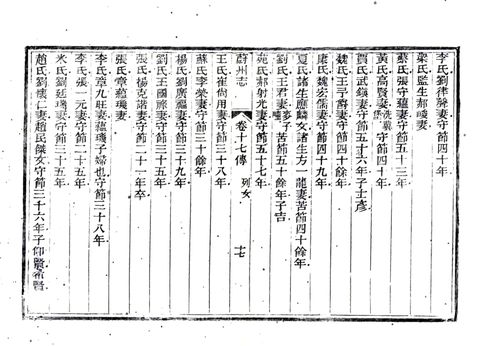 李氏劉律妻守節四十年
梁氏監生郝崚妻
蔡氏張守蘊妻守節五十三年
黃氏高賢妻守節四十年
賈氏武鎮妻守節五十六年子士彥
魏氏王子爵妻守節四十年
康氏姚宏儒妻守節四十九年
夏氏諸生應麟女諸生方一龍妻苦節四十餘年
劉氏王君妻苦節五十餘年子吉
苑氏郝射光妻守節五十七年
蔚州志
卷十七傳
列女
十七
王氏崔尚用妻守節三十八年
蘇氏李榮妻守節三十餘年
楊氏劉廣福妻守節三十九年
劉氏王國妻守節三十五年
張氏楊克諾妻守節二十一年卒
張氏章蘊璣妻
李氏章九旺妻蘊璣子婦也守節三十八年
李氏張一元妻守節三十五年
米氏劉廷瑞妻守節三十五年
趙氏劉懷仁妻趙民傑女守節三十六年子仰賢希賢